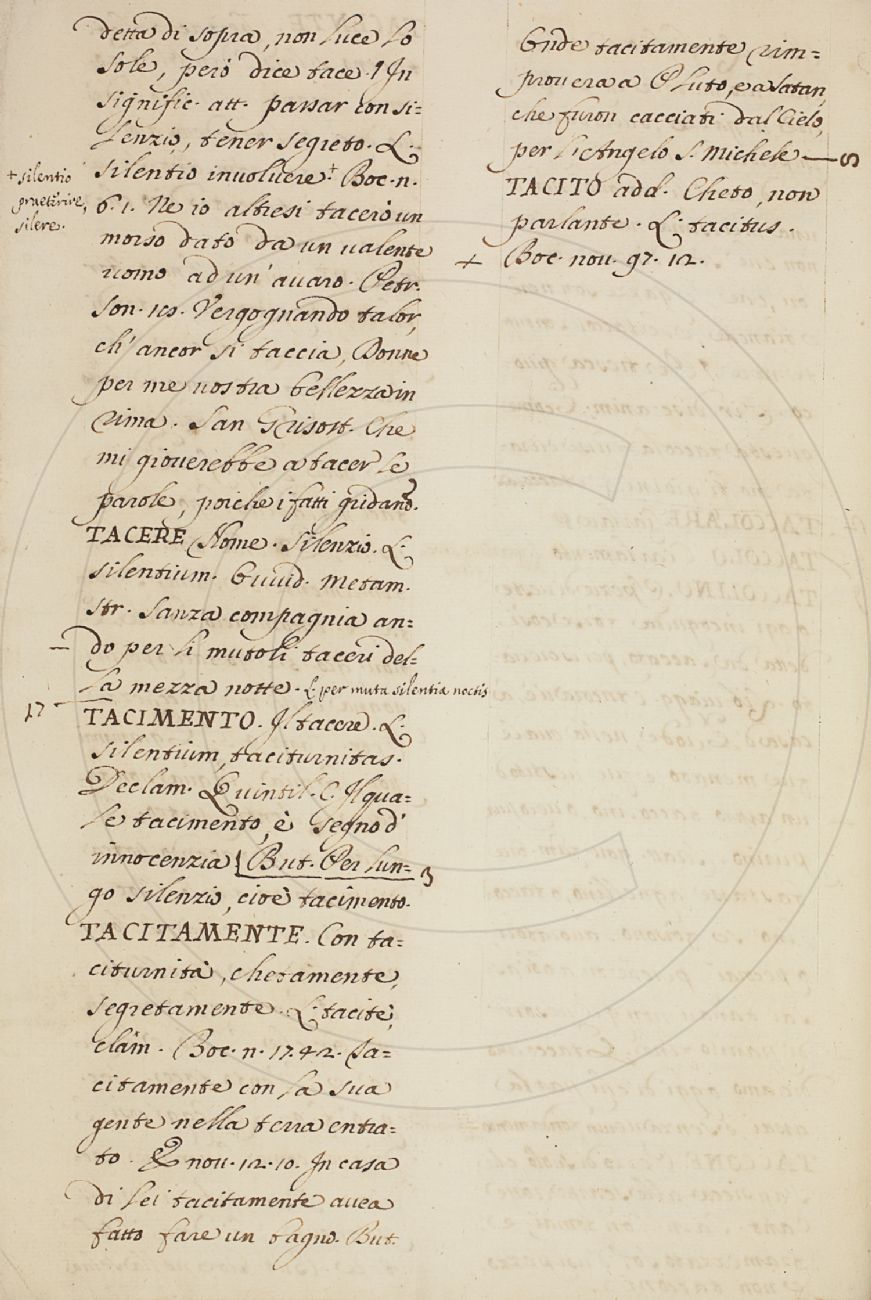 detta di sopra, non luce lo
sole, però dice tace. ¶ In
signific. att. passar con si=
lenzio, tener segreto. L.
silentio involvere + Boc. n.
+ silentio
praeterire,
silere.
6. 1. Ne io altresi tacerò un
morso dato da un valente
uomo ad un' avaro. Petr.
son. 18. Vergognando talor,
ch' ancor si taccia, Donne
per me vostra bellezza in
rima. San Grisost. Che
mi gioverebbe a tacer le
parole, poiche i fatti gridano?
TACERE Nome. Silenzio. L.
silentium. Ovvid. Metam.
str. Sanza compagnia an=
do per li mutoli taceri del=
la mezza notte. L. per muta silentia noctis
17
TACIMENTO. Il tacere. L.
silentium, taciturnitas.
Declam. Quintil. C. Il qua=
le tacimento, è segno d'
innocenzia But. Per lun= 3
go silenzio, cioè tacimento.
TACITAMENTE. Con ta=
citurnità, chetamente,
segretamente. L. tacitè,
clàm. Boc. n. 17. 42. Ta=
citamente con la sua
gente nella terra entra=
to. E nov. 12. 10. In casa
di lei tacitamente avea
fatto fare un bagno. But.
Onde tacitamente rim=
provera a Pluto, e a Satan,
che furon cacciati dal Cielo,
per li Angelo S. Michele
TACITO add. Cheto, non
parlante. L. tacitus.
+ Boc. nov. 97. 12.